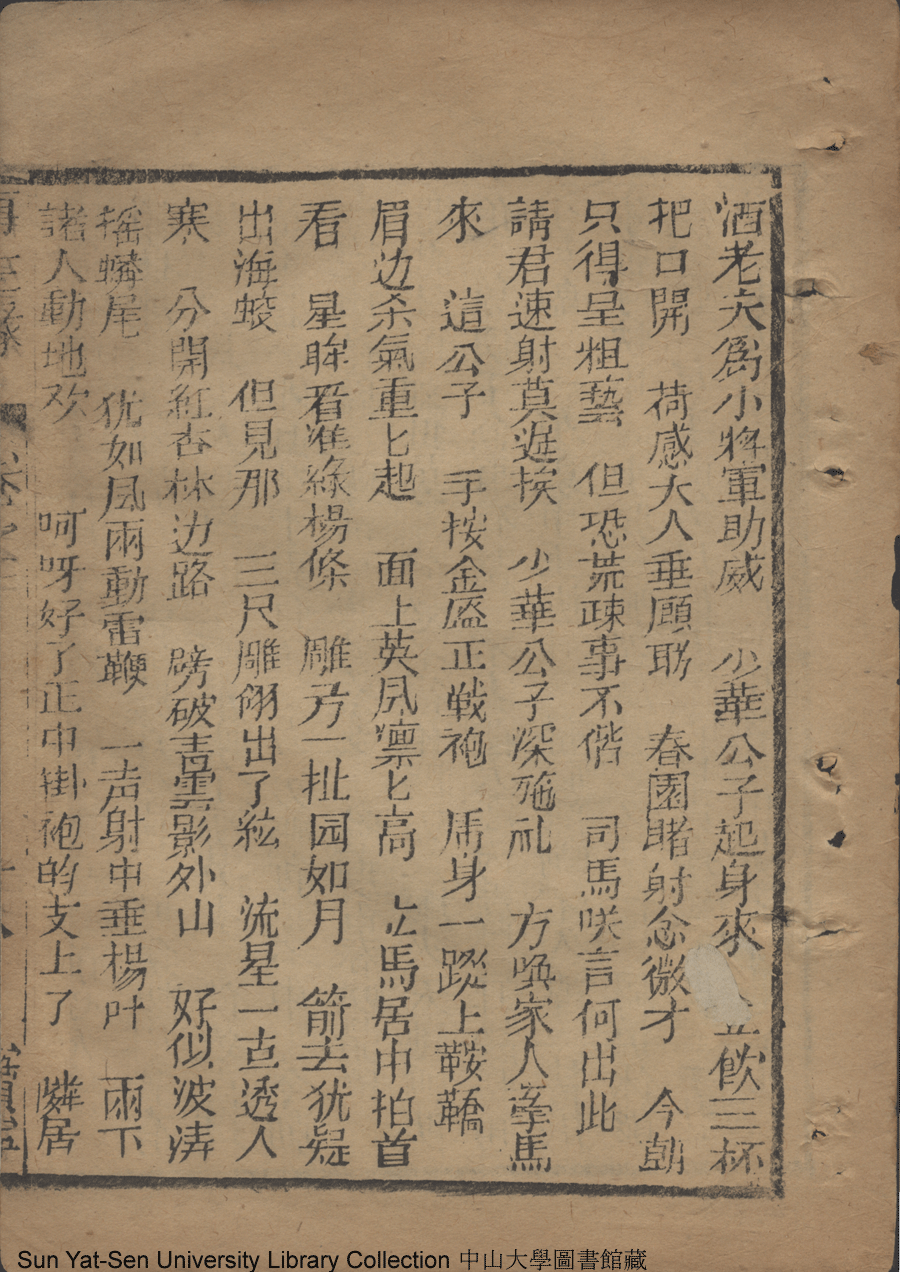 酒老夫爲小將軍助威　少華公子起身來　立飲三杯
把口開　荷感大人垂顧盼　春園賭射念微才　今朝
只得呈粗藝　但恐荒疎事不偕　司馬咲言何出此
請君速射莫遲挨　少華公子深施礼　方喚家人牽馬
來　這公子　手按金盔正戰袍　馬身一蹤上鞍鞽
眉边杀氣重匕起　面上英凤凛匕高　立馬居中拍首
看　星眸看准綠楊條　雕弓一扯园如月　箭去犹疑
出海蛟　但見那　三尺雕翎出了絃　流星一点透人
寒　分開紅杏林边路　劈破青雲影外山　好似波涛
摇鱗尾　犹如凤雨動雷鞭　一声射中垂楊叶　兩下
諸人動地欢　呵呀好了正中掛袍的支上了　隣居
再生緣　卷之　十八
Sun Yat-Sen University Library Collection 中山大學圖書館藏